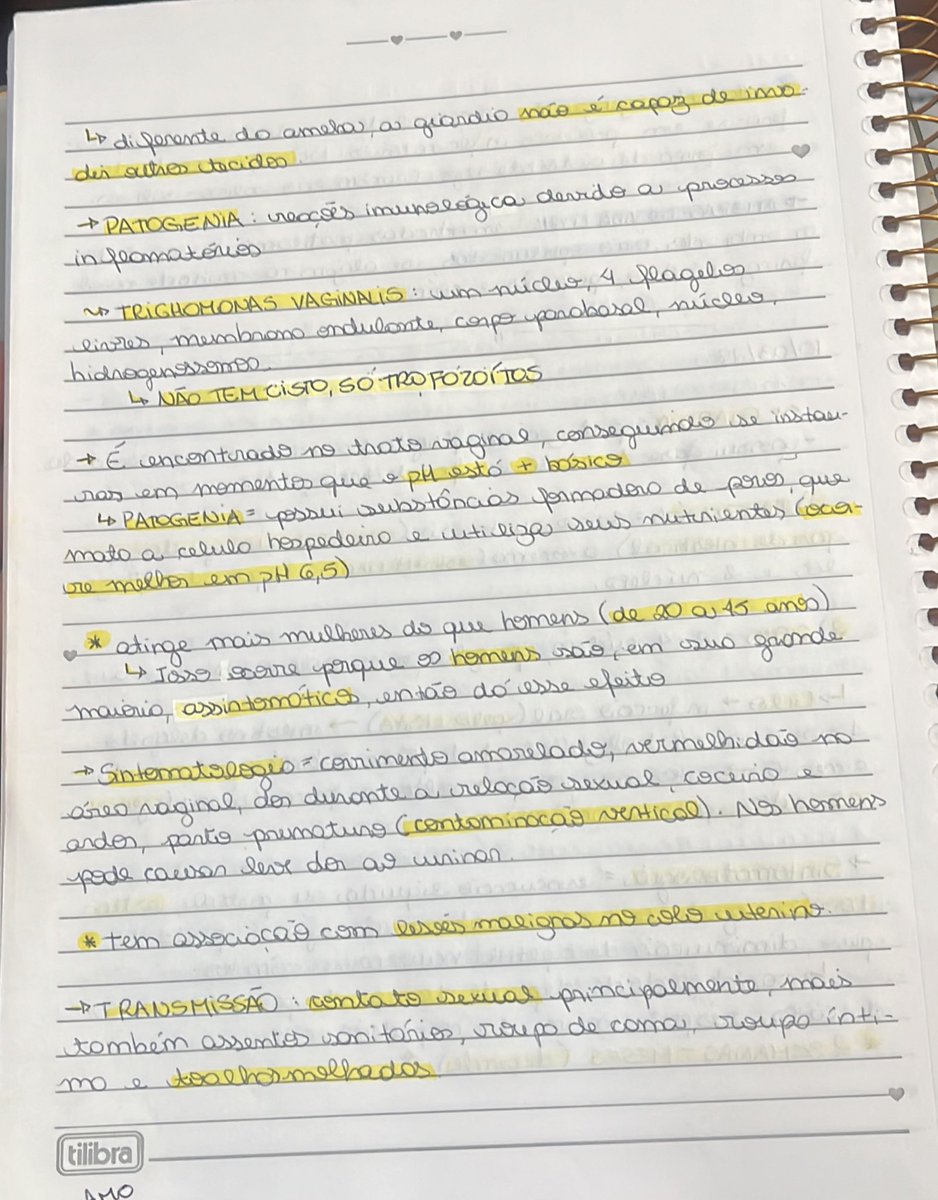 ↳ diferente da ameba, a giardia não é capaz de inva-
dir outros tecidos
→ PATOGENIA: reações imunológica devido a processos
inflamatórios
↝ TRICHOMONAS VAGINALIS: um núcleo, 4 flagelos
livres, membrana ondulante, corpo parabasal, núcleo,
hidrogenossomo.
↳ NÃO TEM CISTO, SÓ TROFOZOÍTOS
→ É encontrado no trato vaginal, conseguindo se instau-
rar em momentos que o pH está + básico
↳ PATOGENIA = possui substâncias formadora de poros, que
mata a celula hospedeira e utiliza seus nutrientes (ocor-
re melhor em pH 6,5)
* atinge mais mulheres do que homens (de 20 a 45 anos)
↳ Isso ocorre porque os homens são, em sua grande
maioria, assintomáticos, então dá esse efeito
→ Sintomatologia = corrimento amarelado, vermelhidão na
área vaginal, dor durante a relação sexual, coceira e
ardor, parto prematuro (contaminação vertical). Nos homens
pode causar leve dor ao urinar.
* tem associação com lesões malignas no colo uterino.
→ TRANSMISSÃO: contato sexual principalmente, mais
também assentos sanitários, roupa de cama, roupa ínti-
ma e toalhas molhadas
tilibra
AMO